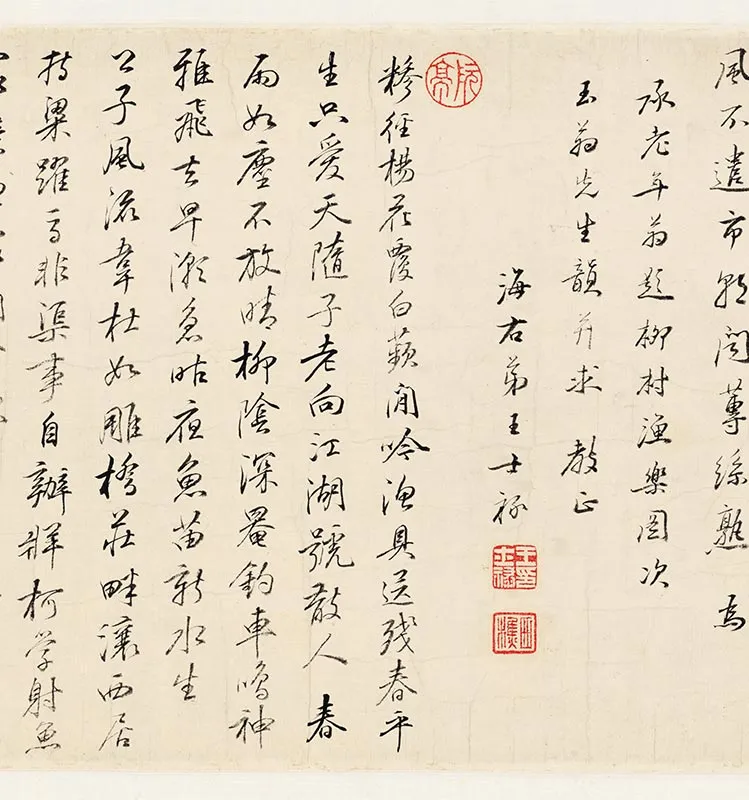 風不遣市朝聞蓴絲熟 為
承老年翁題柳村漁樂圖次
玉翁先生韻并求 教正
海右弟王士祿
王士祿印
西樵
阮亭
糝徑楊花覆白蘋閒吟漁具送殘春平
生只愛天隨子老向江湖號散人 春
雨如塵不放晴柳陰深罨釣車鳴神
雅飛去早潮急昨夜魚苗新水生
公子風流韋杜如雕橋莊畔瀼西居
持粱躍馬非渠事自辦牂柯學射魚